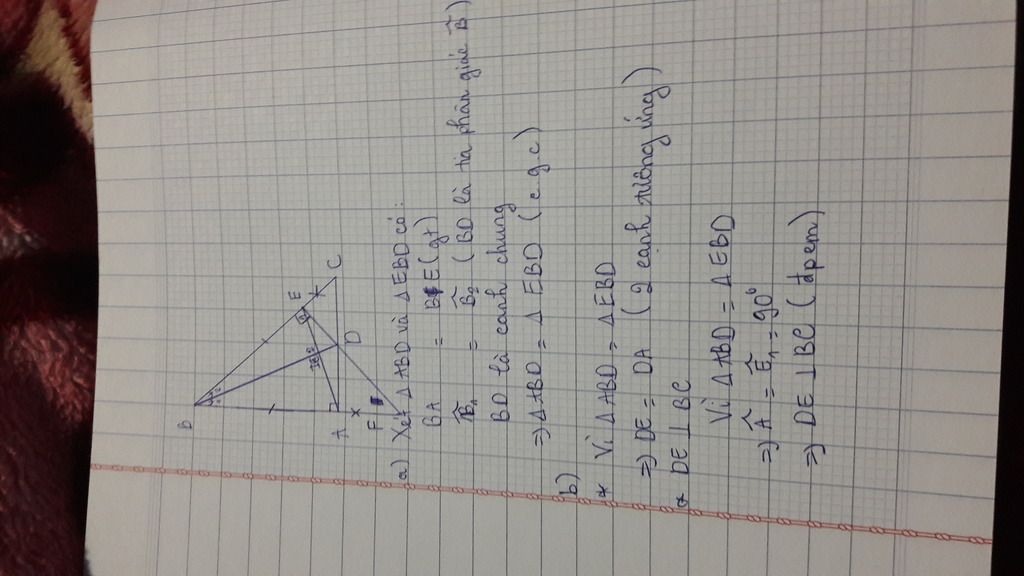 B
1 2
E
1
C
I
1 2
D
A
F
a) Xét ΔABD và ΔEBD có:
BA = BE (gt)
B̂₁ = B̂₂ (BD là tia phân giác B̂)
BD là cạnh chung
=> ΔABD = ΔEBD (c.g.c)
b)
* Vì ΔABD = ΔEBD
=> DE = DA (2 cạnh tương ứng)
* DE ⊥ BC
Vì ΔABD = ΔEBD
=> Â = Ê₁ = 90°
=> DE ⊥ BC (đpcm)